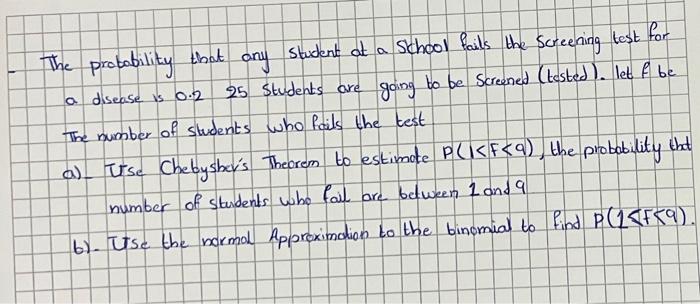 - The probability that any student at a school fails the screening test for
a disease is 0.2 25 students are going to be screened (tested). let F be
The number of students who fails the test
a)- Use Chebyshev's Theorem to estimate P(1<F<9), the probability that
number of students who fail are between 1 and 9
b)- Use the normal Approximation to the binomial to find P(1<F<9).